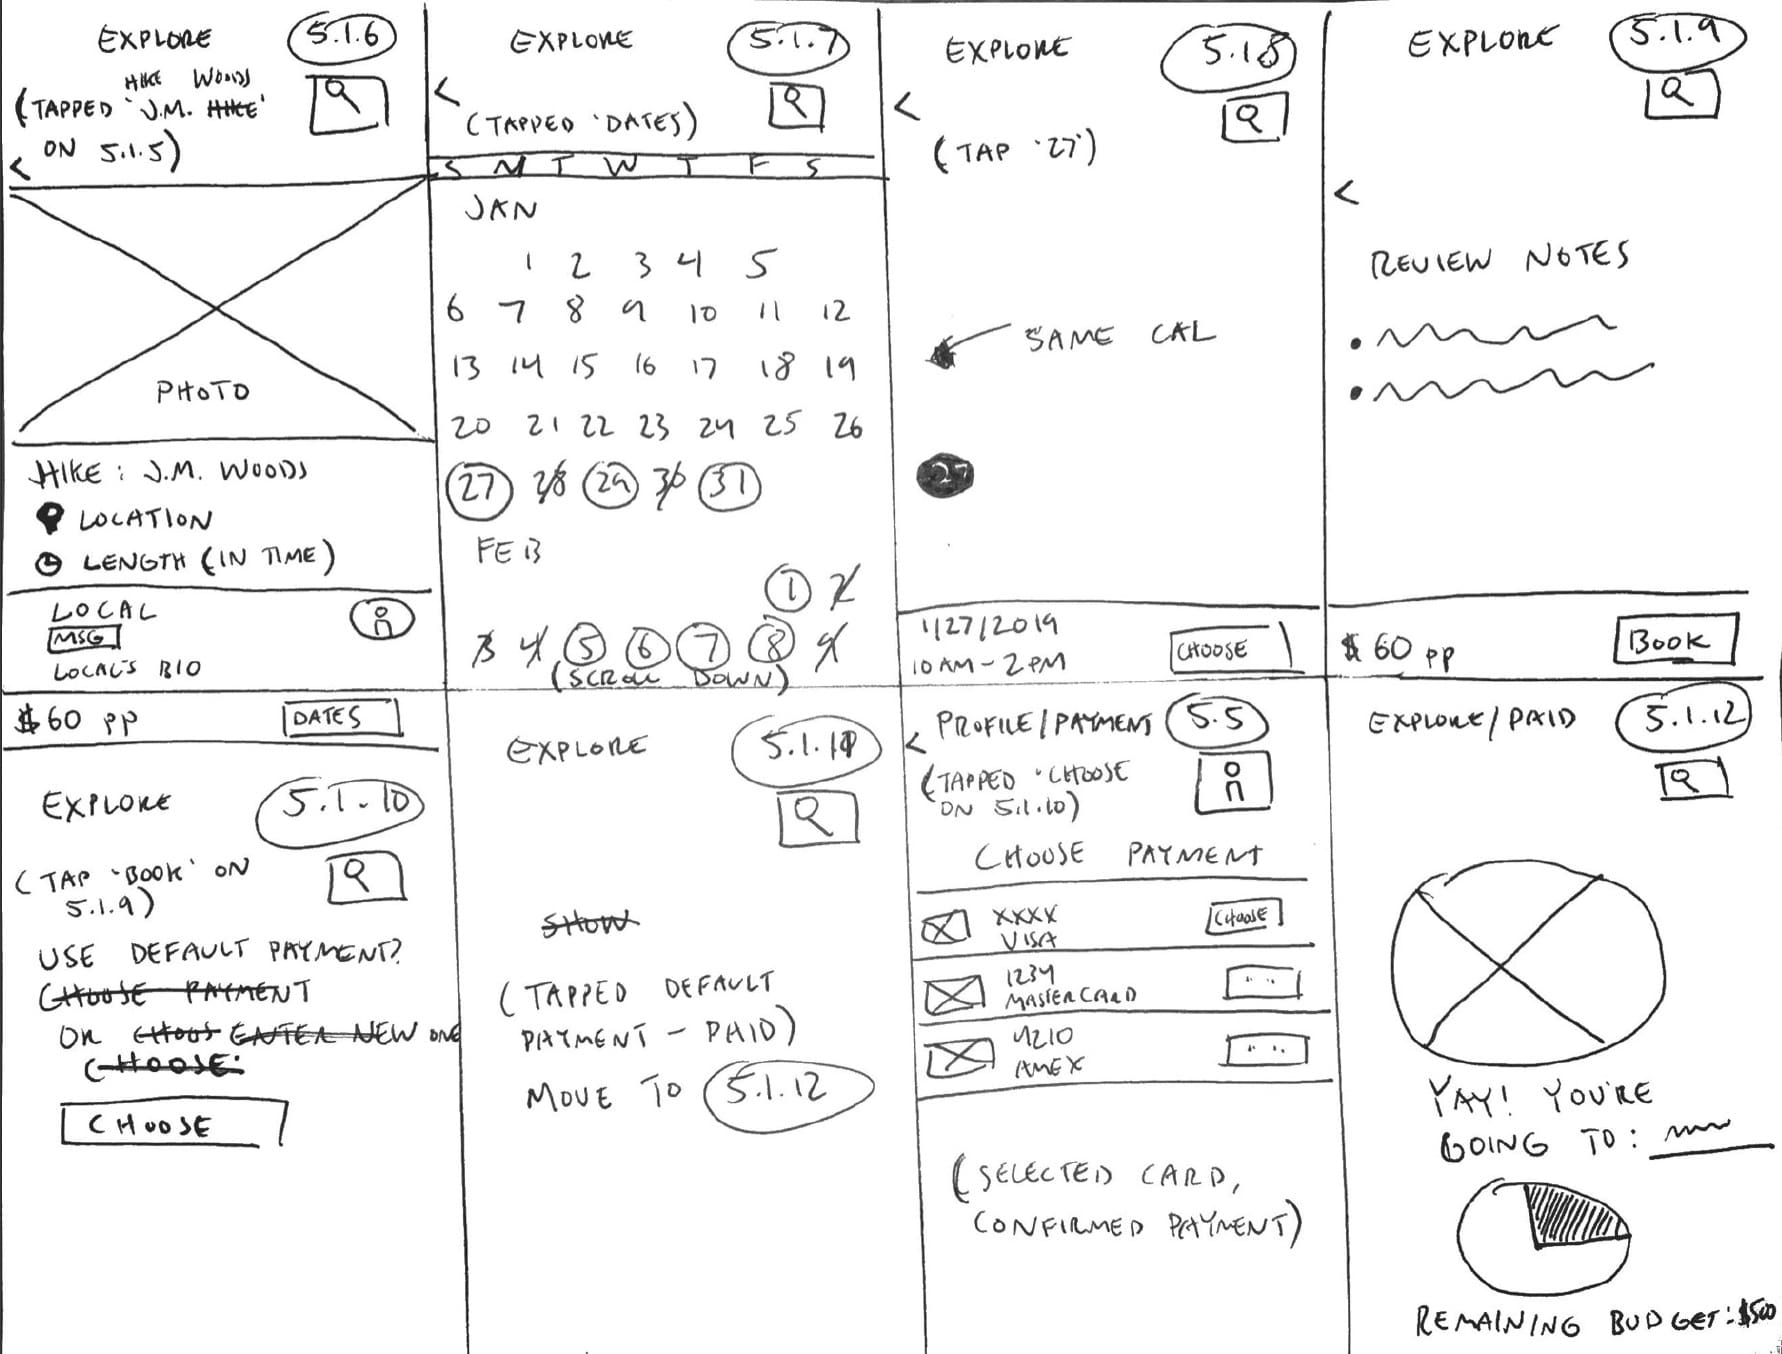 EXPLORE
5.1.6
HIKE WOODS
(TAPPED 'J.M. HIKE'
ON 5.1.5)
<
PHOTO
HIKE: J.M. WOODS
LOCATION
LENGTH (IN TIME)
LOCAL
MSG
LOCAL'S BIO
$60 pp
DATES
EXPLORE
5.1.7
<
(TAPPED 'DATES)
S M T W T F S
JAN
1 2 3 4 5
6 7 8 9 10 11 12
13 14 15 16 17 18 19
20 21 22 23 24 25 26
27 28 29 30 31
FEB
1 2
3 4 5 6 7 8 9
(SCROLL DOWN)
EXPLORE
5.1.8
<
(TAP '27')
SAME CAL
27
1/27/2019
10AM-2PM
CHOOSE
EXPLORE
5.1.9
<
REVIEW NOTES
$60 pp
BOOK
EXPLORE
5.1.10
(TAP 'BOOK' ON
5.1.9)
USE DEFAULT PAYMENT?
CHOOSE PAYMENT
OR CHOOS ENTER NEW ONE
CHOOSE:
CHOOSE
EXPLORE
5.1.11
SHOW
(TAPPED DEFAULT
PAYMENT - PAID)
MOVE TO 5.1.12
<
PROFILE/PAYMENT
5.5
(TAPPED 'CHOOSE
ON 5.1.10)
CHOOSE PAYMENT
XXXX
VISA
CHOOSE
1234
MASTERCARD
4210
AMEX
(SELECTED CARD,
CONFIRMED PAYMENT)
EXPLORE/PAID
5.1.12
YAY! YOU'RE
GOING TO:
REMAINING BUDGET: $500